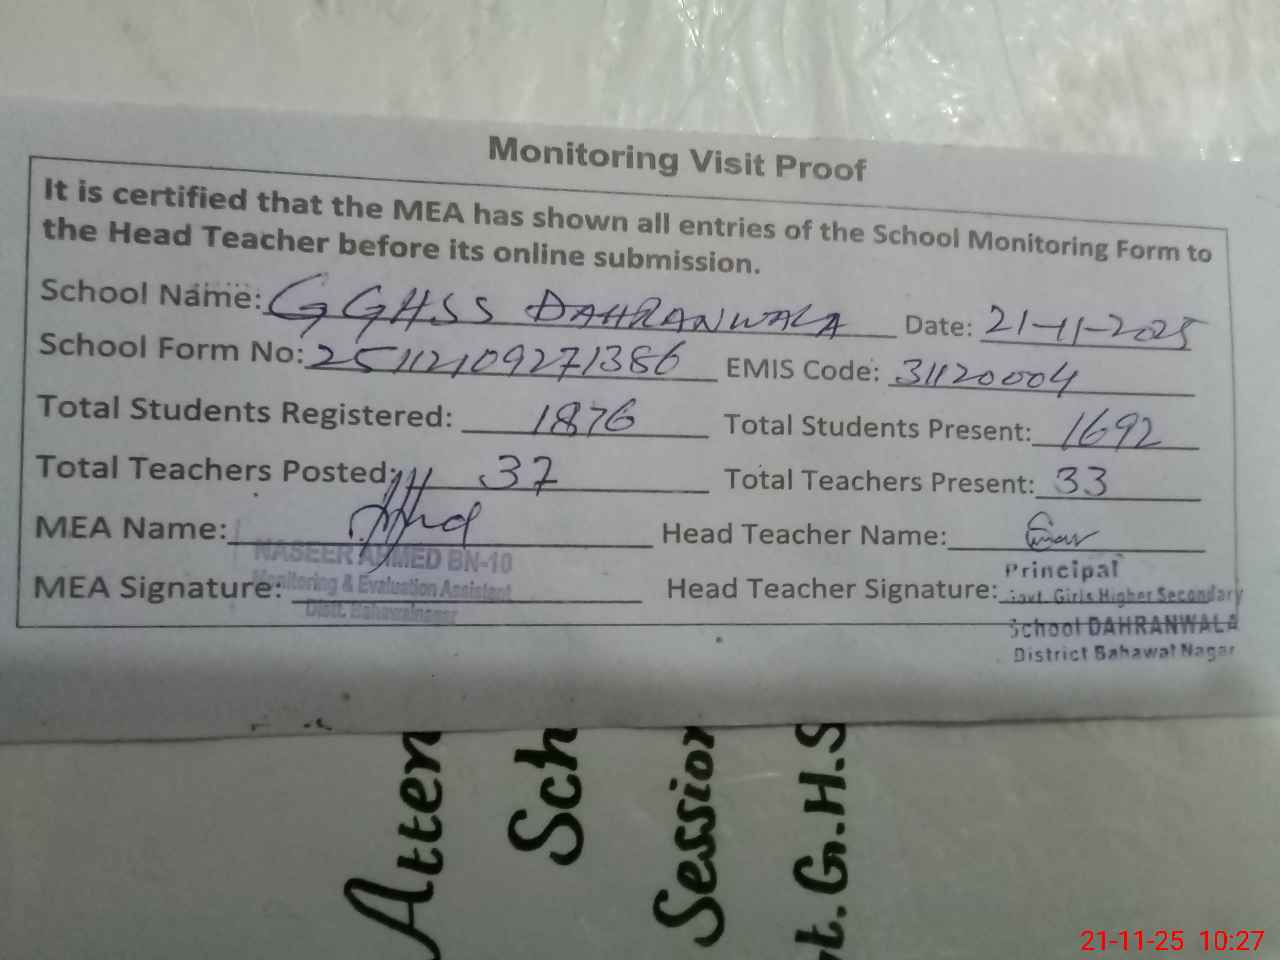 Monitoring Visit Proof
It is certified that the MEA has shown all entries of the School Monitoring Form to
the Head Teacher before its online submission.
School Name: GGHSS DAHRANWALA Date: 21-11-2025
School Form No: 25112109271386 EMIS Code: 31120004
Total Students Registered: 1876 Total Students Present: 1692
Total Teachers Posted: 37 Total Teachers Present: 33
MEA Name: Head Teacher Name:
NASEER AHMED BN-10
Monitoring & Evaluation Assistant
Distt. Bahawalnagar
MEA Signature: Head Teacher Signature:
Principal
Govt. Girls Higher Secondary
School DAHRANWALA
District Bahawal Nagar
Atten
Sch
Session
t. G.H.S
21-11-25 10:27